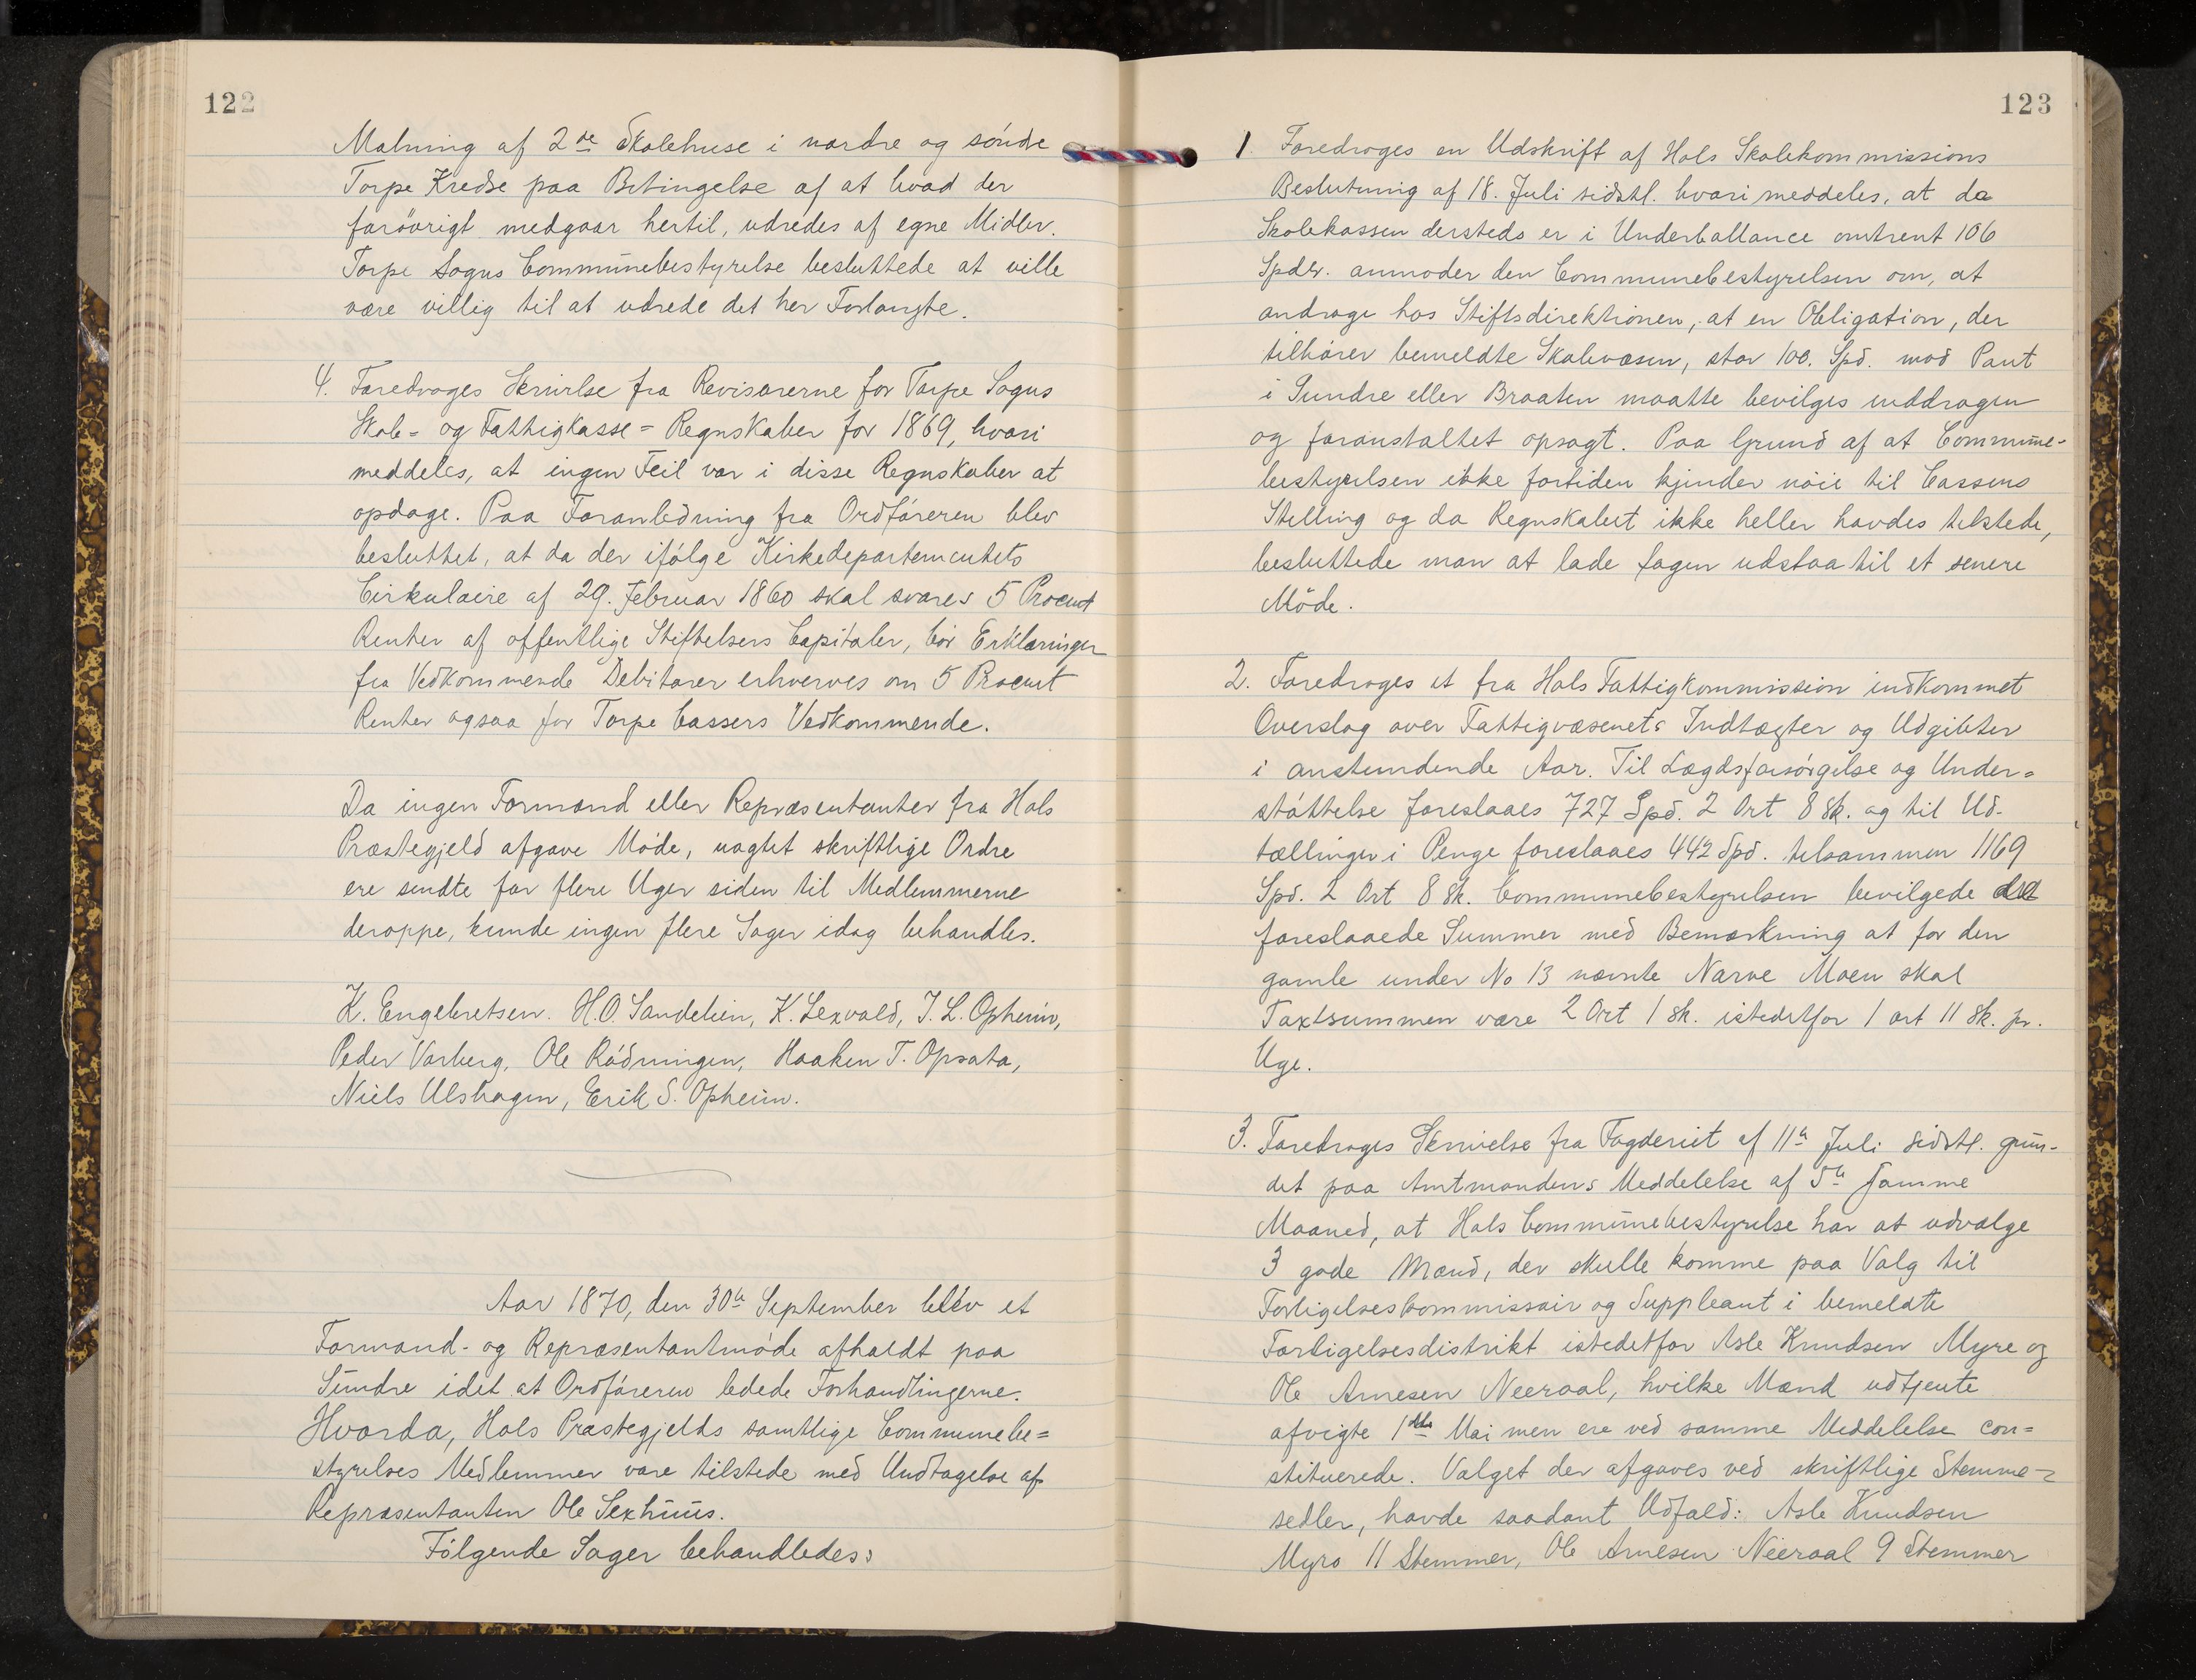 122
Malning af 2de Skolehuse i nordre og söndre
Torpe Kredse paa Betingelse af at hvad der
forövrigt medgaar hertil, udredes af egne Midler.
Torpe Sogns Communebestyrelse besluttede at ville
være villig til at udrede det her Forlangte.
4. Foredroges Skrivelse fra Revisorerne for Torpe Sogns
Skole- og Fattigkasse-Regnskaber for 1869, hvori
meddeles, at ingen Feil var i disse Regnskaber at
opdage. Paa Foranledning fra Ordföreren blev
besluttet, at da der ifölge Kirkedepartementets
Cirkulaire af 29. Februar 1860 skal svares 5 Procent
Renter af offentlige Stiftelsers Capitaler, bör Erklæringer
fra Vedkommende Debitorer erhverves om 5 Procent
Renter ogsaa for Torpe Cassers Vedkommende.
Da ingen Formænd eller Repræsentanter fra Hols
Præstegjeld afgave Möde, uagtet skriftlige Ordre
ere sendte for flere Uger siden til Medlemmerne
deroppe, kunde ingen flere Sager idag behandles.
K. Engebretsen. H.O. Sandelien, K. Lexvold, T. L. Opheim,
Peder Varberg, Ole Rödningen, Haaken T. Opsata,
Niels Ulshagen, Erik S. Opheim.
Aar 1870, den 30te September blev et
Formand- og Repræsentantmöde afholdt paa
Sundre idet at Ordföreren ledede Forhandlingerne.
Hvorda, Hols Præstegjelds samtlige Communebe=
styrelses Medlemmer vare tilstede med Undtagelse af
Repræsentanten Ole Sexhuus.
Fölgende Sager behandledes:
123
1. Foredroges en Udskrift af Hols Skolekommissions
Beslutning af 18. Juli sidstl. hvori meddeles, at da
Skolekassen dersteds er i Underballance omtrent 106
Spdlr. anmoder den Communebestyrelsen om, at
andrage hos Stiftsdirektionen, at en Obligation, der
tilhörer bemeldte Skolevæsen, stor 100. Spd. mod Pant
i Sundre eller Braaten maatte bevilges inddragen
og foranstaltet opsagt. Paa Grund af at Commune-
bestyrelsen ikke fortiden kjender nöie til Cassens
Stelling og da Regnskabet ikke heller havdes tilstede,
besluttede man at lade Sagen udstaa til et senere
Möde.
2. Foredroges et fra Hols Fattigkommission indkommet
Overslag over Fattigvæsenets Indtægter og Udgifter
i anstundende Aar. Til Lægdsforsörgelse og Under=
stöttelse foreslaaes 727 Spd. 2 Ort 8 sk. og til Ud-
tællinger i Penge foreslaaes 442 Spd. tilsammen 1169
Spd. 2 Ort 8 sk. Communebestyrelsen bevilgede det
foreslaaede Summer med Bemærkning at for den
gamle under No 13 nævnte Narve Moen skal
Taxtsummen være 2 Ort 1 sk. istedetfor 1 ort 11 sk. pr.
Uge.
3. Foredroges Skrivelse fra Fogderiet af 11te Juli sidstl. grun-
det paa Amtmandens Meddelelse af 5te samme
Maaned, at Hols Communebestyrelse har at udvælge
3 gode Mænd, der skulle komme paa Valg til
Forligelseskommissair og Suppleant i bemeldte
Forligelsesdistrikt istedetfor Asle Knudsen Myre og
Ole Arnesen Neeraal, hvilke Mænd udtjente
afvigte 1ste Mai men ere ved samme Meddelelse con=
stituerede. Valget der afgaves ved skriftlige Stemme-
sedler, havde saadant Udfald: Asle Knudsen
Myro 11 Stemmer, Ole Arnesen Neeraal 9 Stemmer